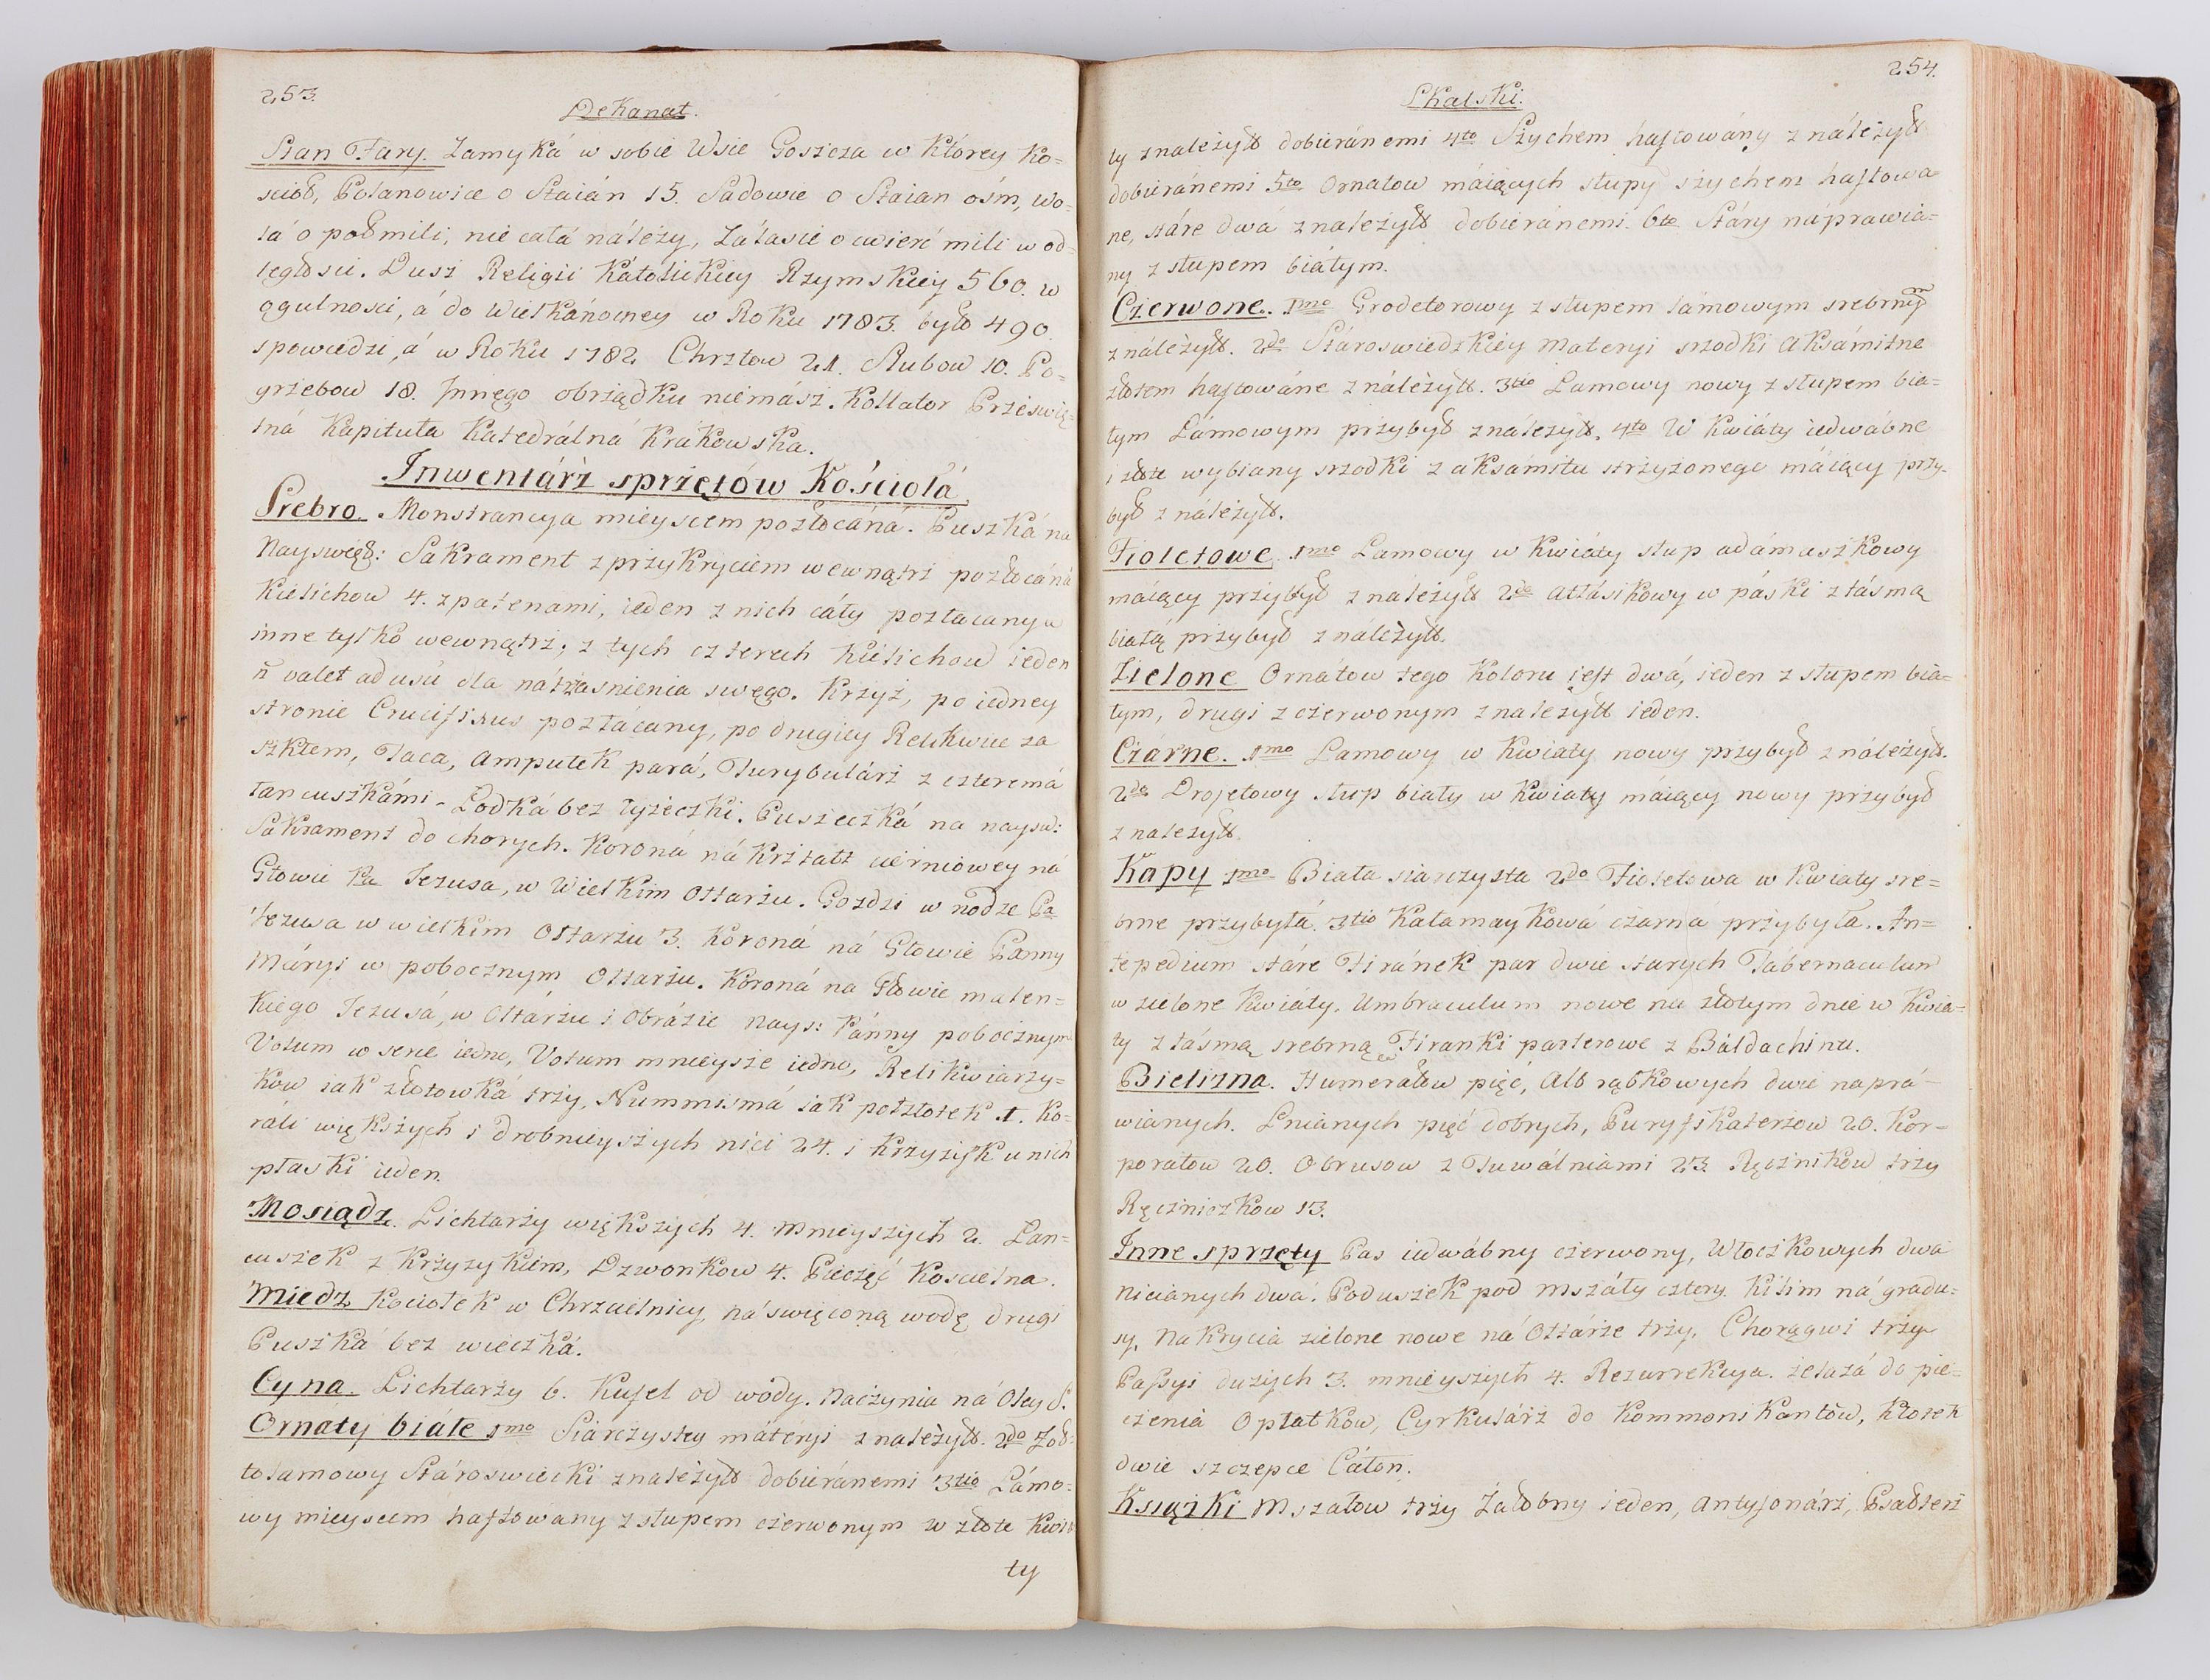 253.
Dekanat.
Stan Fary. Zamyká w sobie Wsie Goszcza w którey Ko=
sciół, Polanowice o Staián 15. Sadowie o Staian ośm, Wo=
lá o pół mili, nie całá náleży, Zalasie o cwierć mili w od=
ległosci. Dusz Religii Kátolickiey Rzymskiey 560. w
ogulnosci, á do Wielkánocney w Roku 1783. było 490.
spowiedzi, á w Roku 1782 Chrztow 21. Slubow 10. Po=
grzebow 18. Innego obrządku niemász. Kollator Prześwię=
tná Kapituła Katedrálná Krakowska.
Inwentárz sprzętów Kościoła
Srebro. Monstrancya mieyscem pozłocána. Puszká na
Nayswięt: Sakrament z przykryciem wewnątrz pozłocáná
Kielichow 4. z patenami, ieden z nich cáły pozłacany a
inne tylko wewnątrz; z tych czterech Kielichow ieden
ñ valet ad usũ dla nátrzasnienia swego. Krzyż, po iedney
stronie Crucifixus pozłácany, po drugiey Relikwie za
szkłem, Taca, Ampułek pará, Turybulárz z czteremá
łancuszkámi. Łodká bez łyżeczki. Puszeczká na naysw:
Sakrament do chorych. Koroná ná Krztałt cierniowey ná
Głowie Pa Jezusa, w Wielkim Ołtarzu. Gozdzi w nodze Pa
Jezusa w wielkim Ołtarzu 3. Koroná ná Głowie Panny
Máryi w pobocznym Ołtarzu. Koroná na Głowie maleń=
kiego Jezusá, w Ołtárzu i Obrázie Nays: Pánny pobocznym
Votum w serce iedno, Votum mnieysze iedno, Relikwiarzy=
kow iak złotowká trzy, Nummismá iak połzłotek 1. Ko=
rali większych i drobnieyszych nici 24. i Krzyżyk u nich
płaski ieden.
Mosiądz. Lichtarzy większych 4. Mnieyszych 2. Łan=
cuszek z Krzyżykiem, Dzwonkow 4. Pieczęć Koscielna.
Miedz Kociołek w Chrzcielnicy, ná święconą wodę drugi
Puszká bez wieczká.
Cyna. Lichtarzy 6. Kufel od wody. Naczynia ná Oley S.
Ornaty białe 1mo Siarczystey máteryi z należyt. 2do Zło=
tolamowy Stároswiecki z należyt dobieránemi 3tio Lámo=
wy mieyscem haftowany z słupem czerwonym w złote Kwia
ty
254.
Skalski.
ty z należyt dobieránemi 4to Sżychem haftowány z náleżyt
dobieránemi 5to Ornatow máiących słupy szychem haftowa
ne, stáre dwá z należyt dobieránemi. 6to Stáry náprawia=
ny z słupem białym.
Czerwone. 1mo Grodetorowy z słupem lámowym srebrnym
z należyt. 2do Stároswiedzkiey Materyi srzodki Aksámitne
złotem haftowáne z náleżyt. 3tio Lamowy nowy z słupem bia=
łym Lámowym przybył z náleżyt. 4to W Kwiáty iedwábne
i złote wybiany srzodki z aksámitu strzyżonego máiący przy=
był z náleżyt.
Fioletowe 1mo Lamowy w Kwiáty słup adámaszkowy
máiący przybył z náleżyt 2do Atłásikowy w páski z tásmą
białą przybył z náleżyt.
Zielone Ornátow tego Koloru iest dwá, ieden z słupem bia=
łym, drugi z czerwonym z należyt ieden.
Czárne. 1mo Lamowy w Kwiaty nowy przybył z náleżyt.
2do Drojetowy słup biały w Kwiaty máiący nowy przybył
z należyt.
Kapy 1mo Biała siarczysta 2do Fioletowa w Kwiaty sre=
brne przybyłá. 3tio Kalamaykowá czarna przybyła. An=
tepedium stáre Firánek par dwie starych Tabernaculum
w zielone Kwiáty. Umbraculum nowe na złotym dnie w Kwia=
ty z tásmą srebrną Firanki parterowe z Báldachinu.
Bielizna. Humerałow pięć, Alb rąbkowych dwie naprá=
wianych. Lnianych pięć dobrych, Puryfikaterzow 20. Kor=
porałow 20. Obrusow z Tuwálniami 23 Ręczników trzy
Ręczniczkow 13.
Inne sprzęty Pas iedwábny czerwony, Włoczkowych dwa
Nicianych dwá. Poduszek pod Mszáły cztery. Kilim ná gradu=
sy, Nakrycia zielone nowe ná Ołtárze trzy, Chorągwi trzy
Passyi dużych 3. mnieyszych 4. Rezurrekcya. żelazá do pie=
czenia Opłatkow, Cyrkulárz do Kommonikantów, Kłotek
dwie szczepce Cáton.
Książki Mszałow trzy Żałobny ieden, Antyfonárz, Psałterz